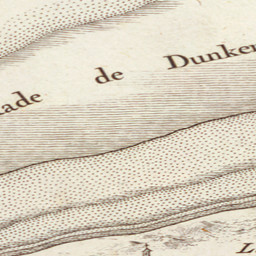 ade de Dunker
L